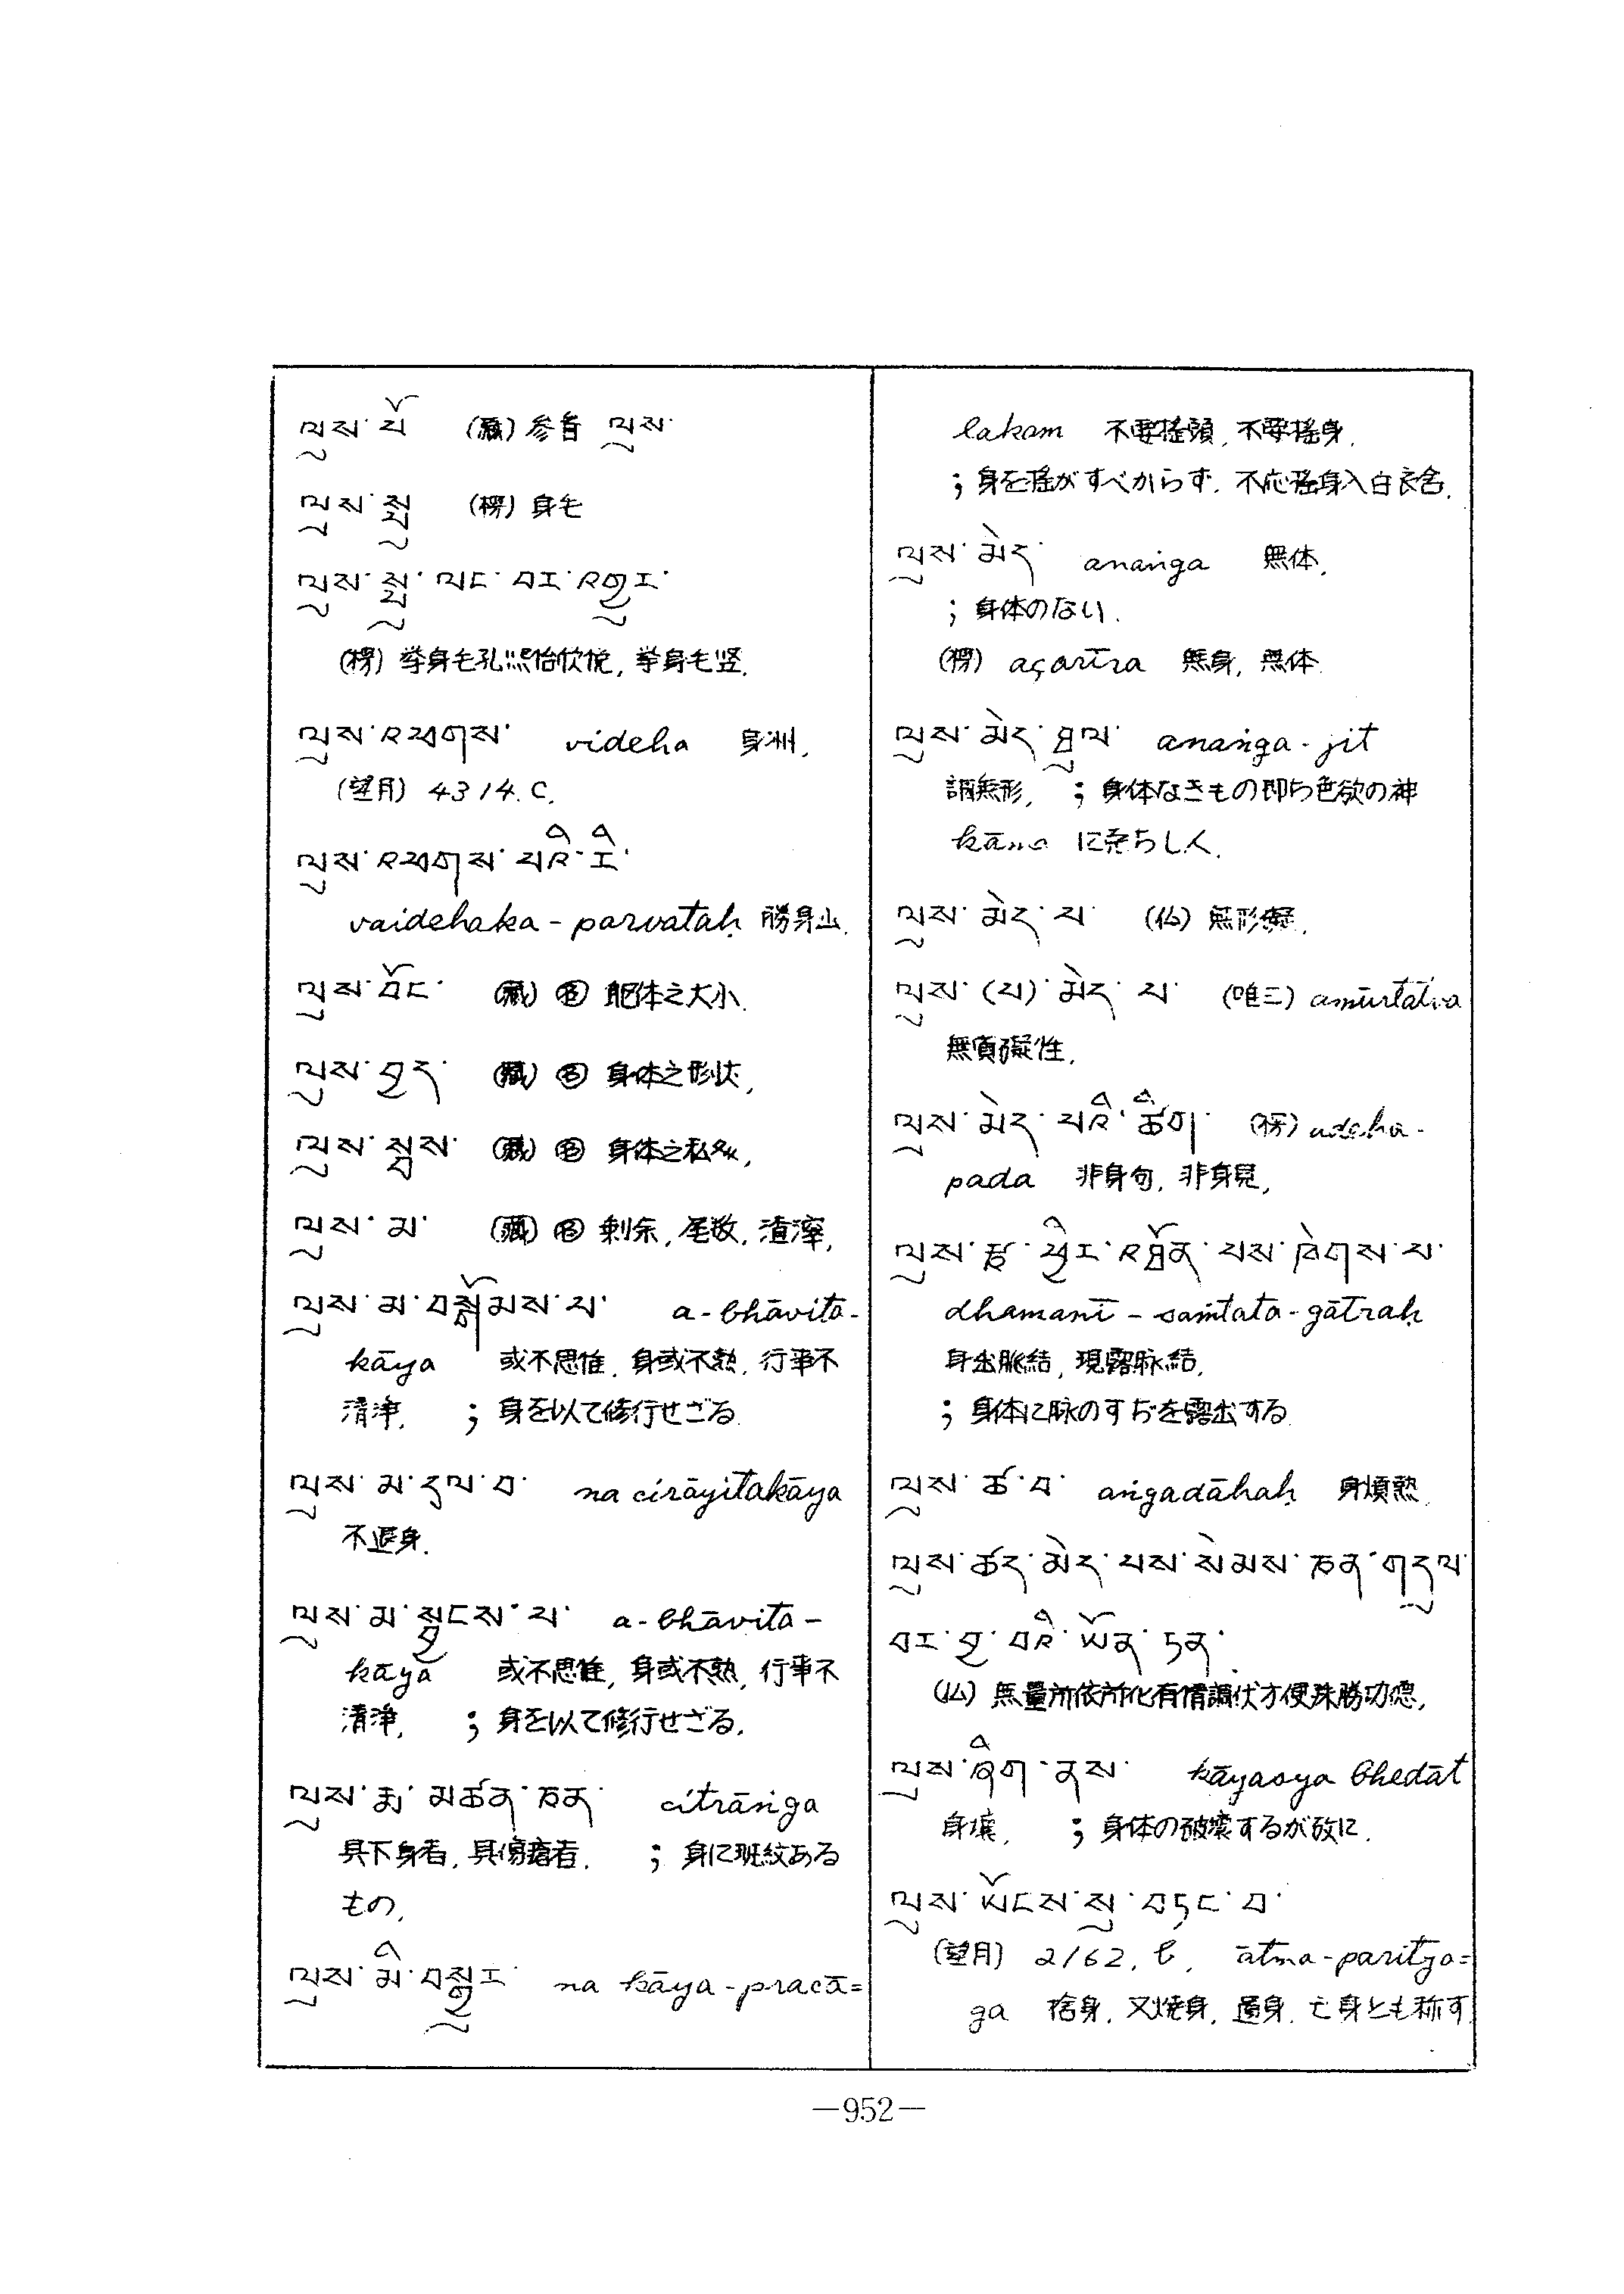 ལུས་པོ (藏) 参旨 ལུས་
ལུས་སྤུ (楞) 身毛
ལུས་སྤུ་ལང་བར་འགྱུར་
(楞) 挙身毛孔熙怡欣悦, 挙身毛竖.
ལུས་འཕགས་ videha 身洲,
(望月) 4314. C,
ལུས་འཕགས་པའི་རི་
vaidehaka - parvataḥ 勝身山.
ལུས་བོང་ (藏) 名 躯体之大小.
ལུས་བྱད་ (藏) 名 身体之形状,
ལུས་སྦས་ (藏) 名 身体之私処,
ལུས་མ་ (藏) 名 剰余, 尾数, 渣滓,
ལུས་མ་བསྒོམས་པ་ a-bhāvita-
kāya 或不思惟, 身或不熟, 行事不
清浄, ; 身を以て修行せざる.
ལུས་མ་དལ་བ་ na cirāyitakāya
不遅身.
ལུས་མ་སྦྱངས་པ་ a-bhāvita-
kāya 或不思惟, 身或不熟, 行事不
清浄, ; 身を以て修行せざる.
ལུས་རྨ་མཚན་ཅན་ citrāṅga
具下身者, 具傷瘡者. ; 身に斑紋ある
もの,
ལུས་མི་བསྒྱུར་ na kāya-pracā=
lakam 不要揺頭, 不要揺身.
; 身を揺がすべからず. 不応揺身入白衣舎.
ལུས་མེད་ anaṅga 無体.
; 身体のない.
(楞) açarīra 無身, 無体
ལུས་མེད་ཐུལ་ anaṅga - jit
調無形, ; 身体なきもの即ち色欲の神
kāma に克ちし人.
ལུས་མེད་པ་ (仏) 無形礙.
ལུས་(པ)་མེད་པ་ (唯三) amūrtatva
無質礙性,
ལུས་མེད་པའི་ཚིག་ (楞) adeha-
pada 非身句, 非身見,
ལུས་རྩ་ཕྱིར་འཐོན་པས་ཁེགས་པ་
dhamanī - saṁtata - gātraḥ
身出脈結, 現露脉結.
; 身体に脉のすぢを露出する.
ལུས་ཚ་བ་ aṅgadāhaḥ 身煩熱.
ལུས་ཚད་མེད་པས་སེམས་ཅན་གདུལ་
བར་བྱ་བའི་ཡོན་ཏན་
(仏) 無量所依所化有情調伏方便殊勝功徳,
ལུས་ཞིག་ནས་ kāyasya bhedāt
身壊, ; 身体の破壊するが故に.
ལུས་ཡོངས་སུ་བཏང་བ་
(望月) 2162, b, ātma-parityā=
ga 捨身, 又焼身, 遺身, 亡身とも称す
—952—